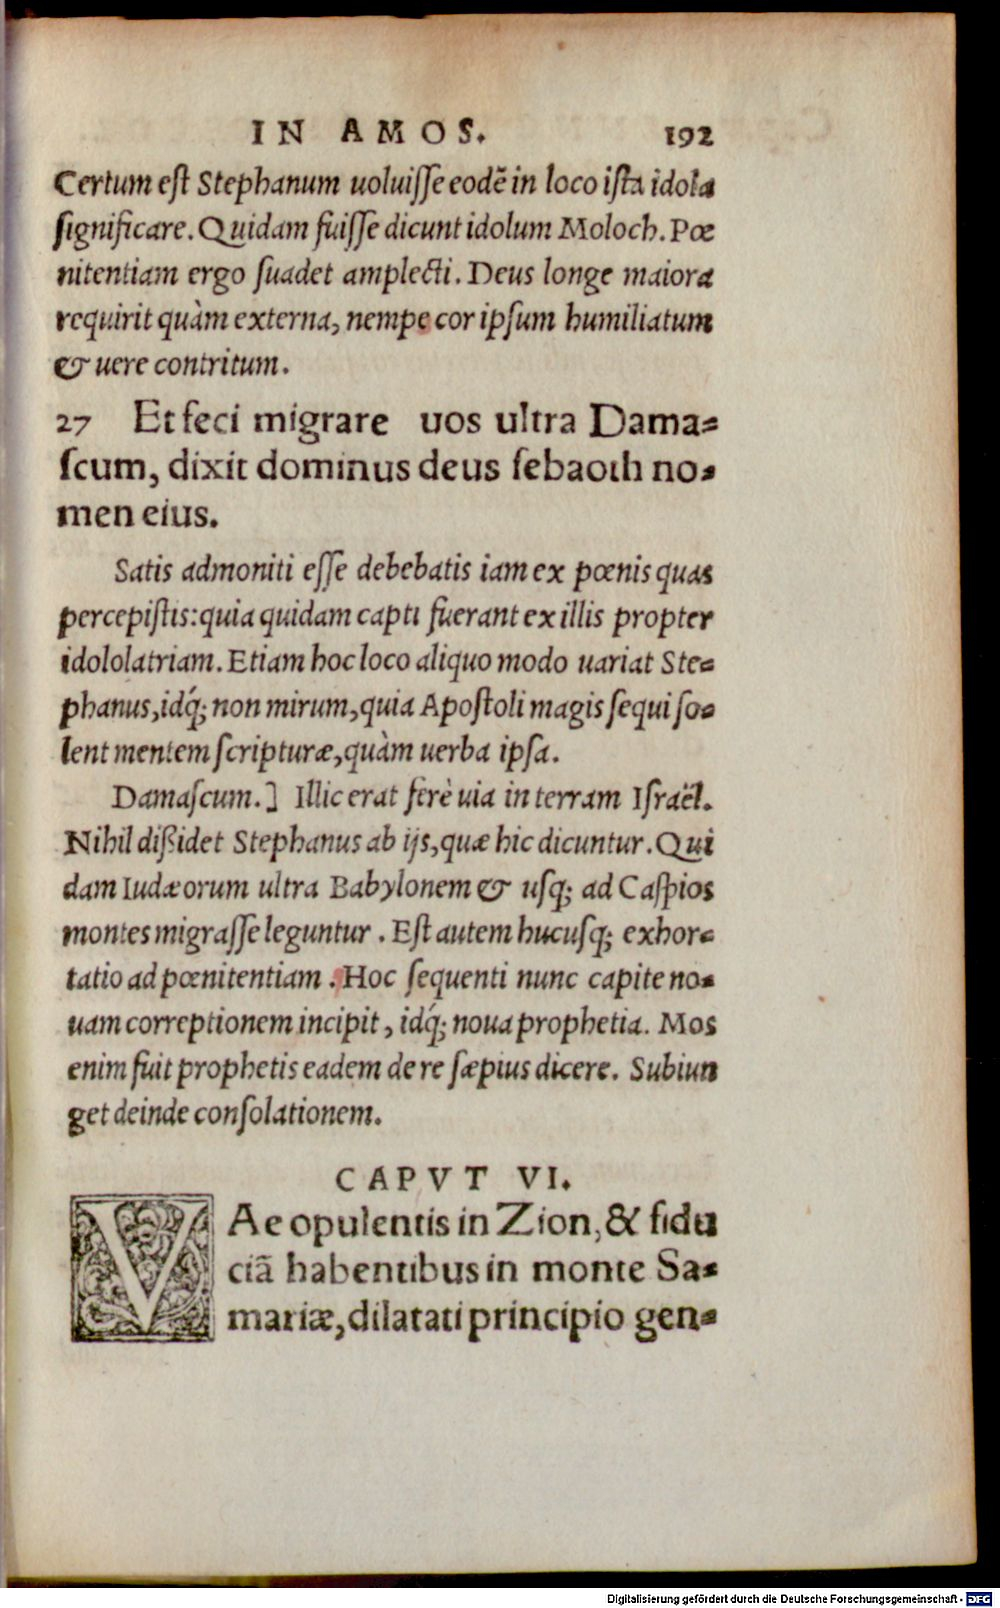 IN AMOS. 192
Certum est Stephanum uoluisse eodẽ in loco ista idola
significare. Quidam fuisse dicunt idolum Moloch. Pœ
nitentiam ergo suadet amplecti. Deus longe maiora
requirit quàm externa, nempe cor ipsum humiliatum
& uere contritum.
27 Et feci migrare uos ultra Dama-
scum, dixit dominus deus sebaoth no-
men eius.
Satis admoniti esse debebatis iam ex pœnis quas
percepistis: quia quidam capti fuerant ex illis propter
idololatriam. Etiam hoc loco aliquo modo uariat Ste-
phanus, idq́; non mirum, quia Apostoli magis sequi so-
lent mentem scripturæ, quàm uerba ipsa.
Damascum.] Illic erat ferè uia in terram Israël.
Nihil dißidet Stephanus ab ijs, quæ hic dicuntur. Qui
dam Iudæorum ultra Babylonem & usq; ad Caspios
montes migrasse leguntur. Est autem hucusq; exhor-
tatio ad pœnitentiam. Hoc sequenti nunc capite no-
uam correptionem incipit, idq́; noua prophetia. Mos
enim fuit prophetis eadem de re sæpius dicere. Subiun
get deinde consolationem.
CAPVT VI.
VAe opulentis in Zion, & fidu
ciã habentibus in monte Sa-
mariæ, dilatati principio gen-
Digitalisierung gefördert durch die Deutsche Forschungsgemeinschaft - DFG